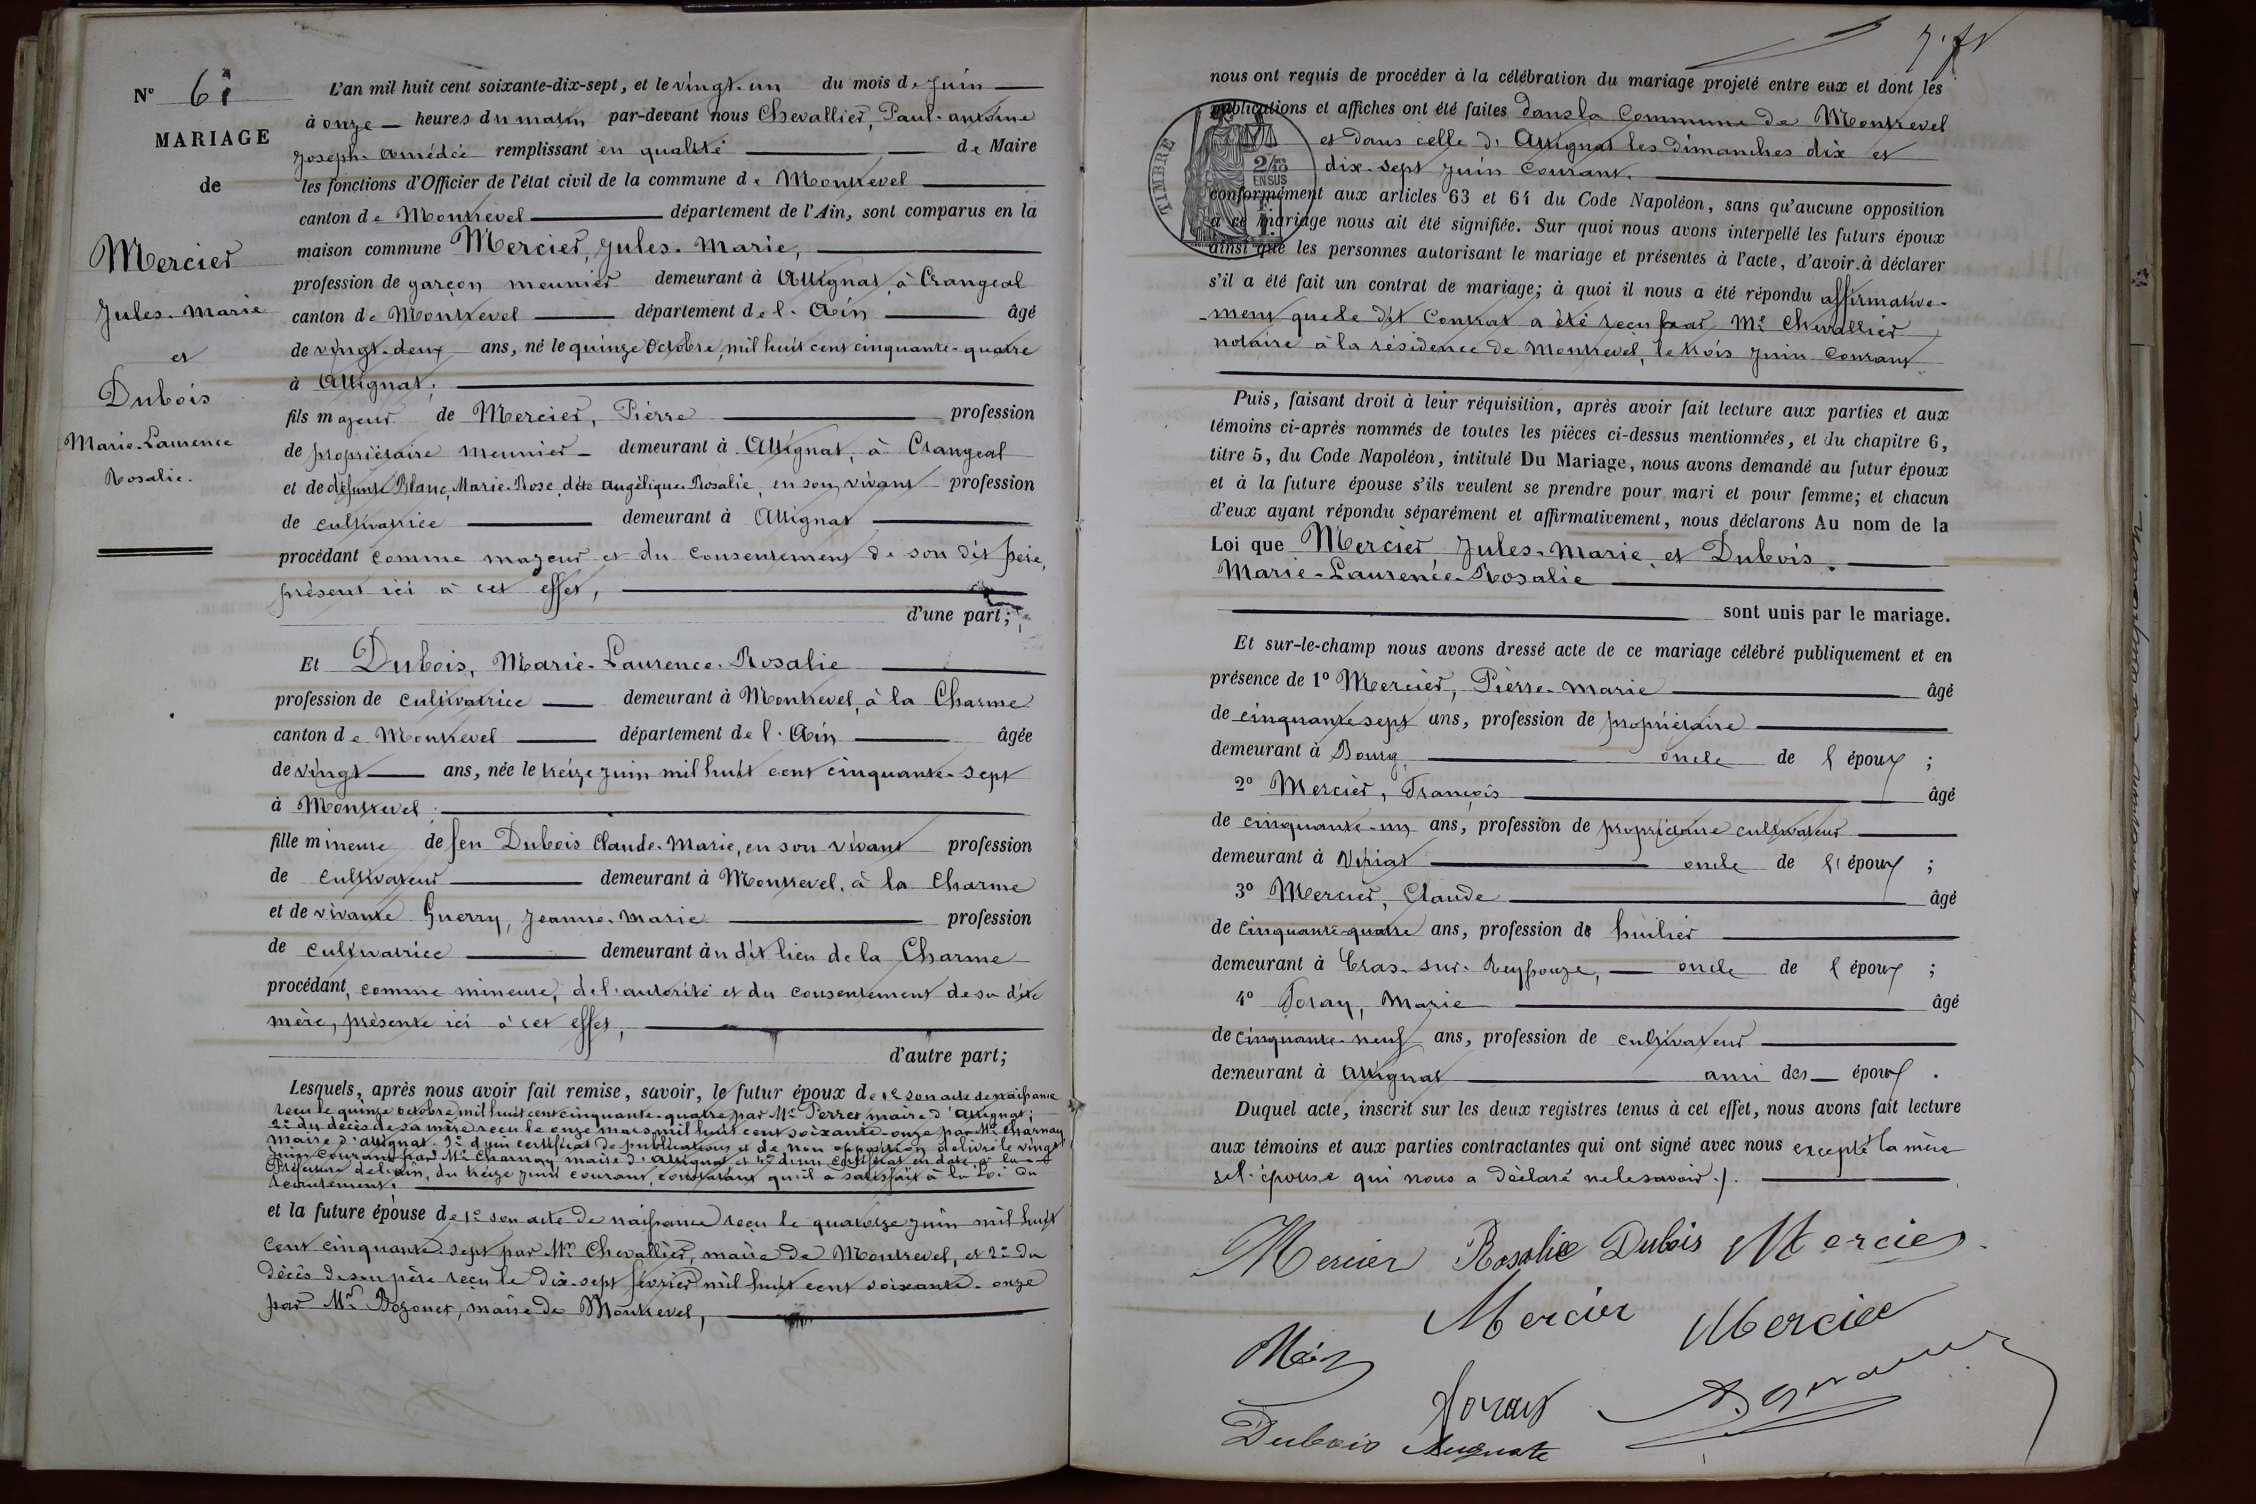 N° 6
MARIAGE
de
Mercier
Jules-Marie
et
Dubois
Marie-Laurence
Rosalie.
L'an mil huit cent soixante-dix-sept, et le vingt-un du mois de Juin
à onze heures du matin par-devant nous Chevallier, Paul-antoine
Joseph-amédée remplissant en qualité de Maire
les fonctions d'Officier de l'état civil de la commune de Montrevel
canton de Montrevel département de l'Ain, sont comparus en la
maison commune Mercier, Jules-Marie,
profession de garçon meunier demeurant à Attignat, à Crangeat
canton de Montrevel département de l'Ain âgé
de vingt-deux ans, né le quinze Octobre, mil huit cent cinquante-quatre
à Attignat,
fils majeur de Mercier, Pierre profession
de propriétaire meunier demeurant à Attignat, à Crangeat
et de défunte Blanc, Marie-Rose, dite angélique-Rosalie, en son vivant profession
de cultivatrice demeurant à Attignat
procédant comme majeur et du consentement de son dit père,
présent ici à cet effet,
d'une part;
Et Dubois, Marie-Laurence-Rosalie
profession de cultivatrice demeurant à Montrevel, à la Charme
canton de Montrevel département de l'Ain âgée
de vingt ans, née le treize juin mil huit cent cinquante-sept
à Montrevel
fille mineure de feu Dubois Claude-Marie, en son vivant profession
de cultivateur demeurant à Montrevel, à la Charme
et de vivante Guerry, Jeanne-Marie profession
de cultivatrice demeurant au dit lieu de la Charme
procédant, comme mineure, de l'autorité et du consentement de sa dite
mère, présente ici à cet effet,
d'autre part;
Lesquels, après nous avoir fait remise, savoir, le futur époux de 1° son acte de naissance
reçu le quinze octobre mil huit cent cinquante-quatre par Mr Perret maire d'attignat;
2° du décès de sa mère reçu le onze mars mil huit cent soixante-onze par Mr Charnay
maire d'attignat. 3° d'un certificat de publications et de non opposition délivré le vingt
juin courant par Mr Charnay maire d'attignat et 4° d'un certificat en date à la
Préfecture de l'ain, du treize juin courant, constatant qu'il a satisfait à la Loi du
recrutement,
et la future épouse de 1° son acte de naissance reçu le quatorze juin mil huit
cent cinquante-sept par Mr Chevallier, maire de Montrevel, et 2° du
décès de son père reçu le dix-sept février mil huit cent soixante-onze
par Mr Bozonet, maire de Montrevel,
nous ont requis de procéder à la célébration du mariage projeté entre eux et dont les
publications et affiches ont été faites dans la Commune de Montrevel
et dans celle d'Attignat les dimanches dix et
dix-sept juin courant.
TIMBRE
2/10 EN SUS
conformément aux articles 63 et 64 du Code Napoléon, sans qu'aucune opposition
à ce mariage nous ait été signifiée. Sur quoi nous avons interpellé les futurs époux
ainsi que les personnes autorisant le mariage et présentes à l'acte, d'avoir à déclarer
s'il a été fait un contrat de mariage; à quoi il nous a été répondu affirmative-
-ment que le dit Contrat a été reçu par Me Chevallier
notaire à la résidence de Montrevel, le trois juin courant
Puis, faisant droit à leur réquisition, après avoir fait lecture aux parties et aux
témoins ci-après nommés de toutes les pièces ci-dessus mentionnées, et du chapitre 6,
titre 5, du Code Napoléon, intitulé Du Mariage, nous avons demandé au futur époux
et à la future épouse s'ils veulent se prendre pour mari et pour femme; et chacun
d'eux ayant répondu séparément et affirmativement, nous déclarons Au nom de la
Loi que Mercier Jules-Marie, et Dubois,
Marie-Laurence-Rosalie
sont unis par le mariage.
Et sur-le-champ nous avons dressé acte de ce mariage célébré publiquement et en
présence de 1° Mercier, Pierre-Marie âgé
de cinquante sept ans, profession de propriétaire
demeurant à Bourg, oncle de l'époux ;
2° Mercier, François âgé
de cinquante-un ans, profession de propriétaire cultivateur
demeurant à Viriat oncle de l'époux ;
3° Mercier, Claude âgé
de cinquante-quatre ans, profession de huilier
demeurant à Cras-sur-Reyssouze, oncle de l'époux ;
4° Foray, Marie âgé
de cinquante-neuf ans, profession de cultivateur
demeurant à Attignat ami des époux .
Duquel acte, inscrit sur les deux registres tenus à cet effet, nous avons fait lecture
aux témoins et aux parties contractantes qui ont signé avec nous excepté la mère
de l'épouse qui nous a déclaré ne le savoir./.
Mercier Rosalie Dubois Mercier
Mercier Mercier
Foray
Dubois Auguste